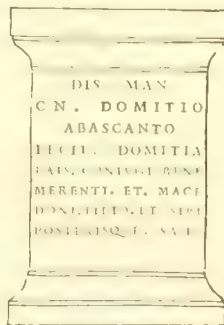 DIS MAN
CN. DOMITIO
ABASCANTO
FECIT. DOMITIA
LAIS. CONIVGI BENE
MERENTI. ET. MACE
DONI. FILIO. ET SIBI
POSTERISQ